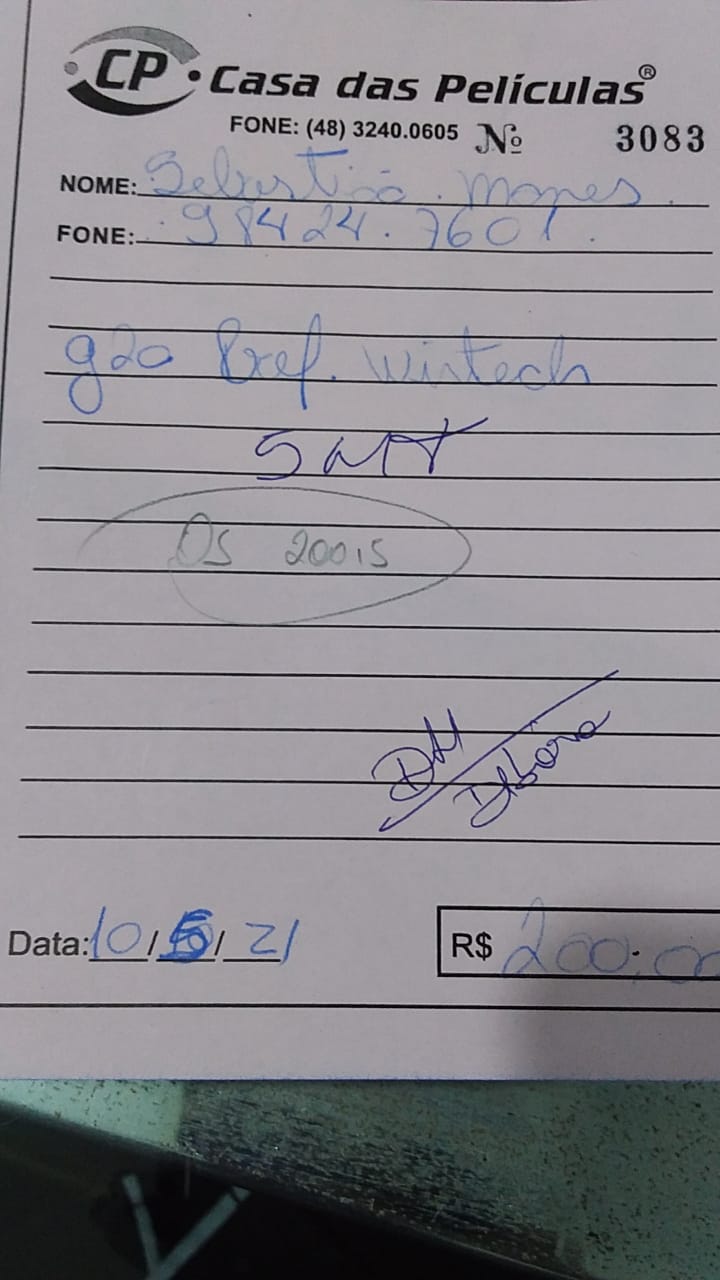 CP • Casa das Películas®
FONE: (48) 3240.0605 Nº 3083
NOME: Sebastião.
FONE: 98424.7601.
g20 Pref. Wintech
SMT
OS 20015
DM
Débora
Data: 10/5/21 R$ 200,00